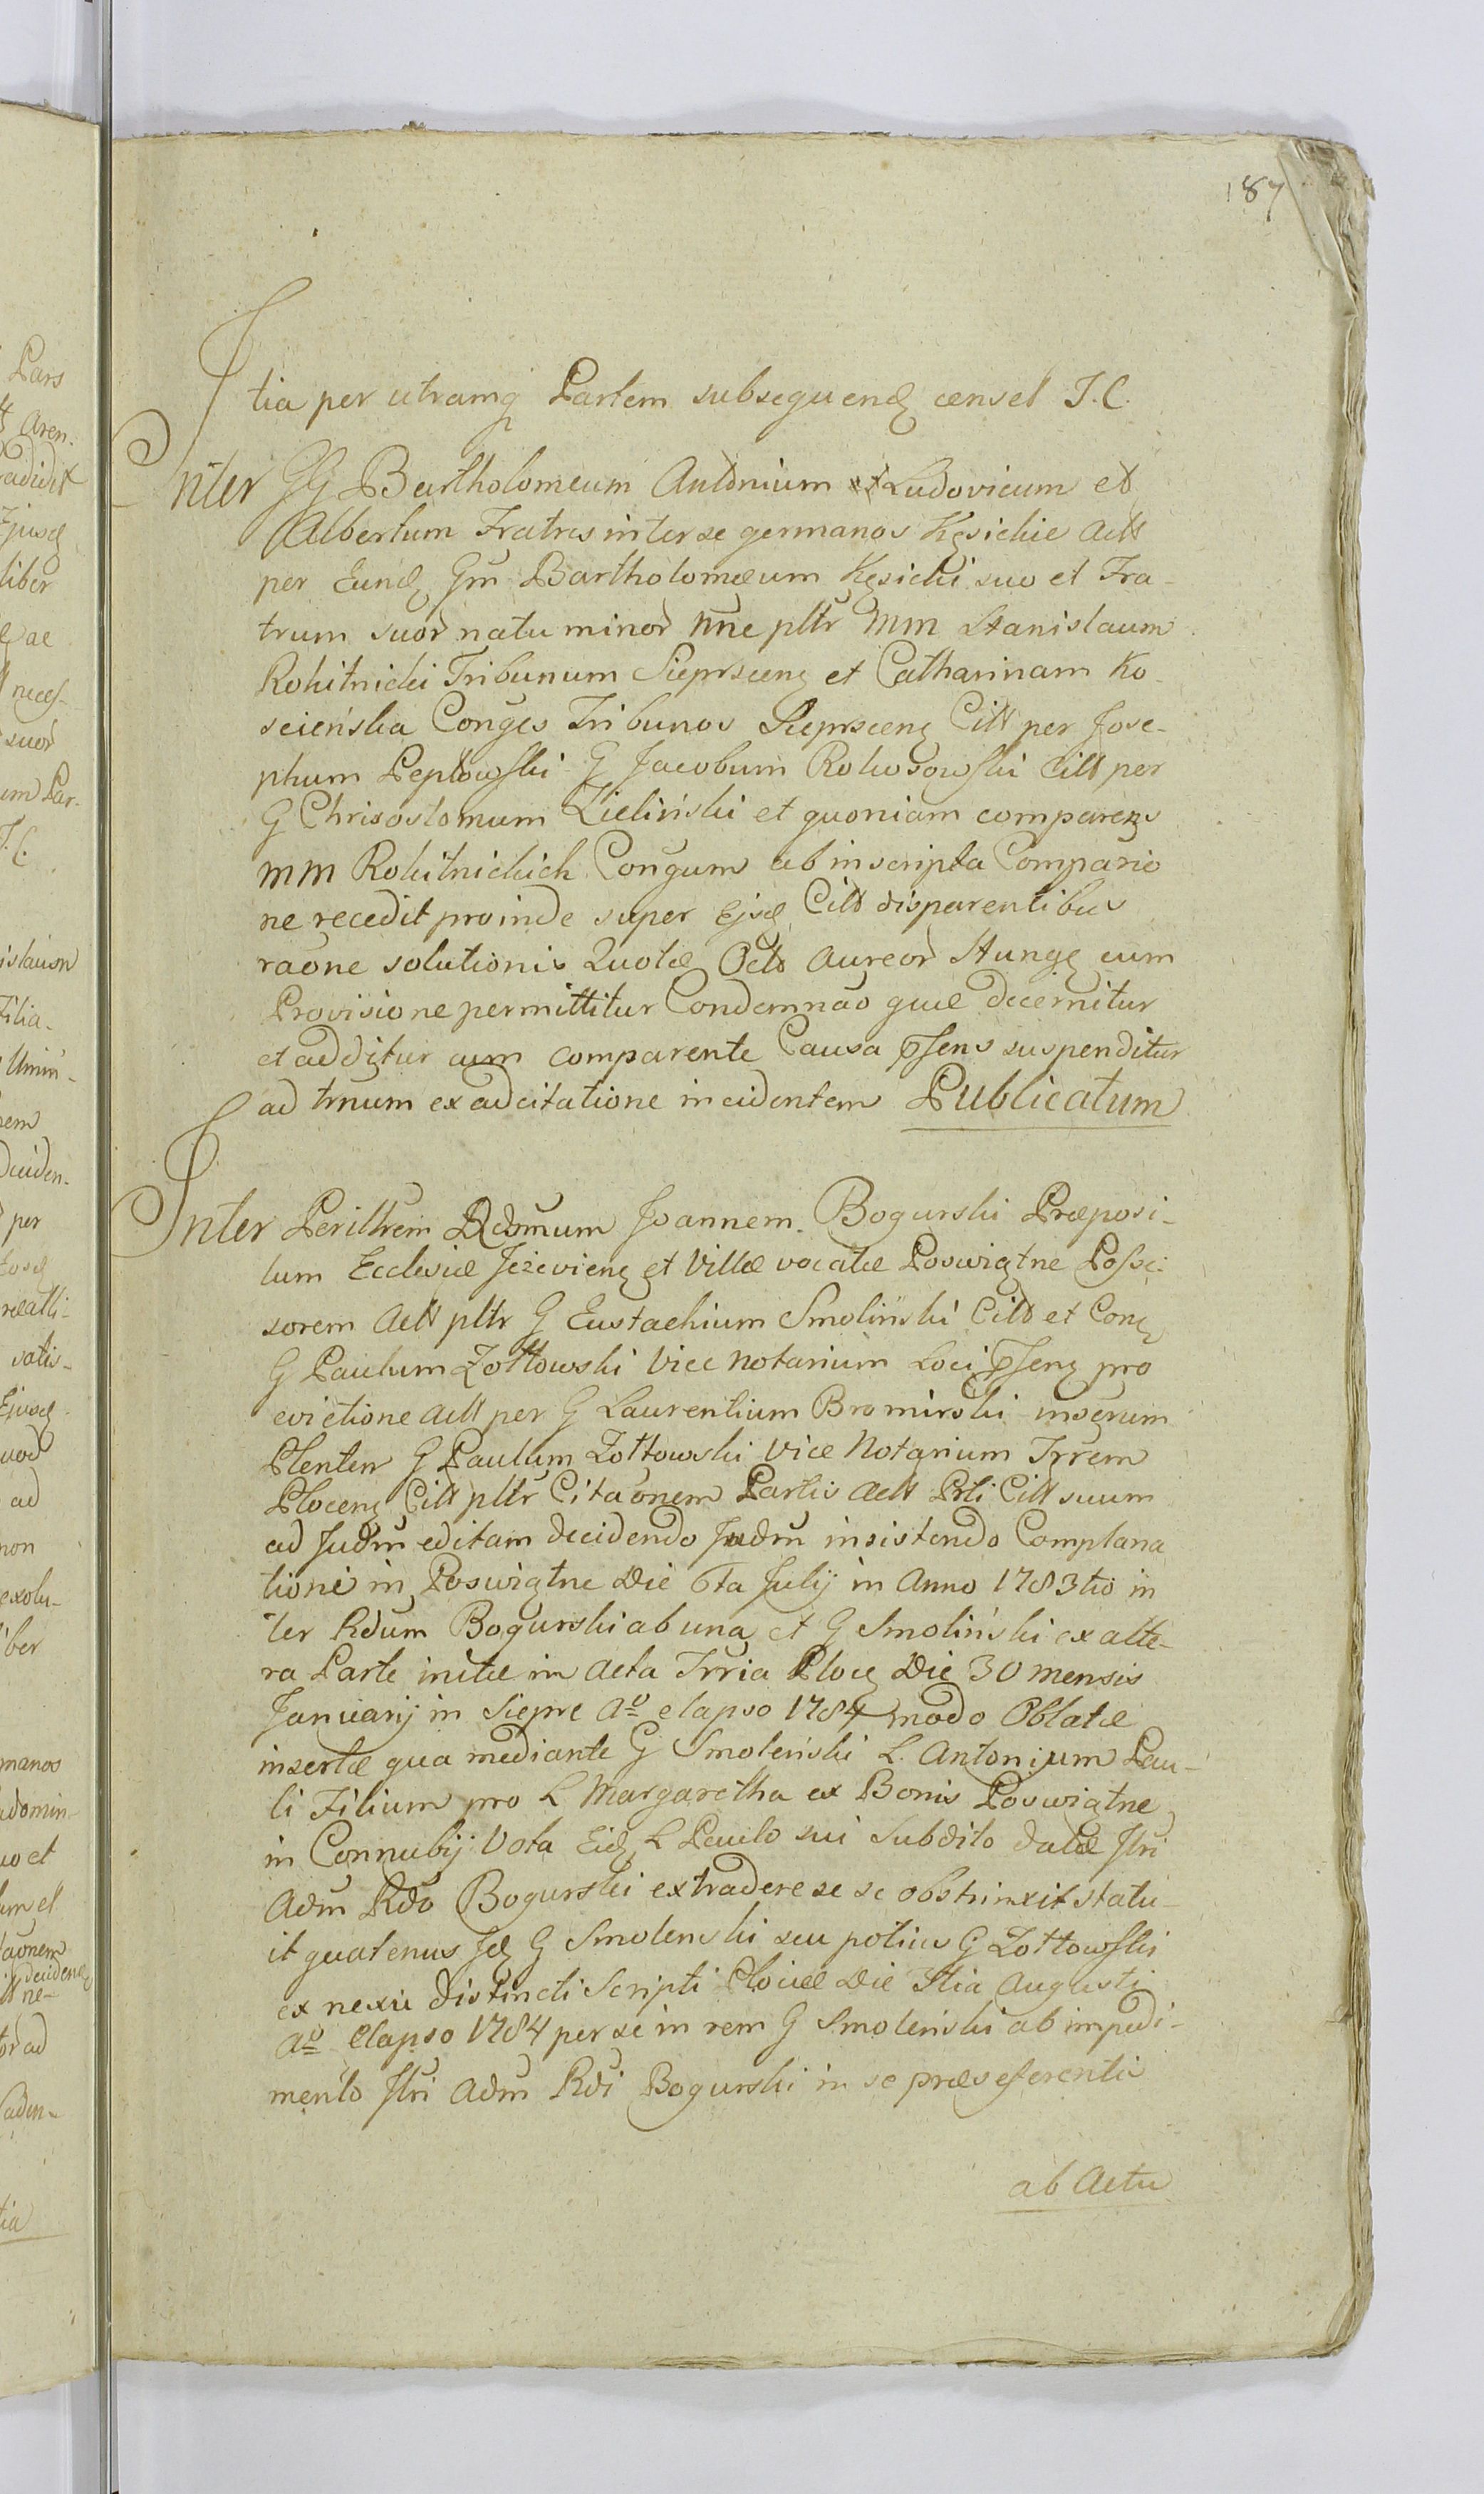 187
tia per utramq Partem subsequend censet J.C.
Inter GG Bartholomeum Antonium et Ludovicum et
Albertum Fratres inter se germanos Kęsickie Actt
per Eund Gm Bartholomæum Kęsicki suo et Fra-
trum suor natu minor nne pltr MM Stanislaum
Rokitnicki Tribunum Sieprscen et Catharinam Ko-
scieńska Conges Tribunos Sieprscen Citt per Jose-
phum Peplowski G Jacobum Rokosowski Citt per
G Chrisostomum Zieliński et quoniam comparens
MM Rokitnickich Congum ab inscripta Compario
ne recedit proinde super Ejsd Citt disparentibus
raone solutionis Quotæ Octo Aureor Hung cum
Provisione permittitur Condemnao quæ decernitur
et additur cum comparente Causa pſens suspenditur
ad trnum ex adcitatione incidentem Publicatum
Inter Perilltrem Rdmum Joannem Bogurski Præposi-
tum Ecclesiæ Jeżevien et Villæ vocatæ Poswiątne Posse-
sorem Actt pltr G Eustachium Smoliński Citt et Con
G Paulum Zołtowski Vice Notarium Loci pſen pro
evictione Actt per G Laurentium Bromirski
Plenten G Paulum Zołtowski Vice Notarium Trrem
Plocen Citt pltr Citaonem Partis Actt Prti Citt suum
ad Judm editam decidendo Judm insistendo Complana
tioni in Poswiątne Die 6ta Julij in Anno 1783tio in
ter Rdum Bogurski ab una et G Smoliński ex alte-
ra Parte initæ in Acta Trria Ploc Die 30 mensis
Januarij in Siepre Ao elapso 1784 modo Oblatæ
insertæ qua mediante G Smoleński L. Antonium Pau-
li Filium pro L Margaretha ex Bonis Poswiątne
in Connubij Vota Eid L Paulo sui Subdito datæ Jlri
Adm Rdo Bogurski extradere se se obstrinxit statu-
it quatenus Jd G Smolenski seu potius G Zołtowski
ex nexu distincti Scripti Plocæ Die 3tia Augusti
Ao elapso 1784 per se in rem G Smoleński ab impedi-
mento Jlri Adm Rdi Bogurski in se præseferentis
ab Actu